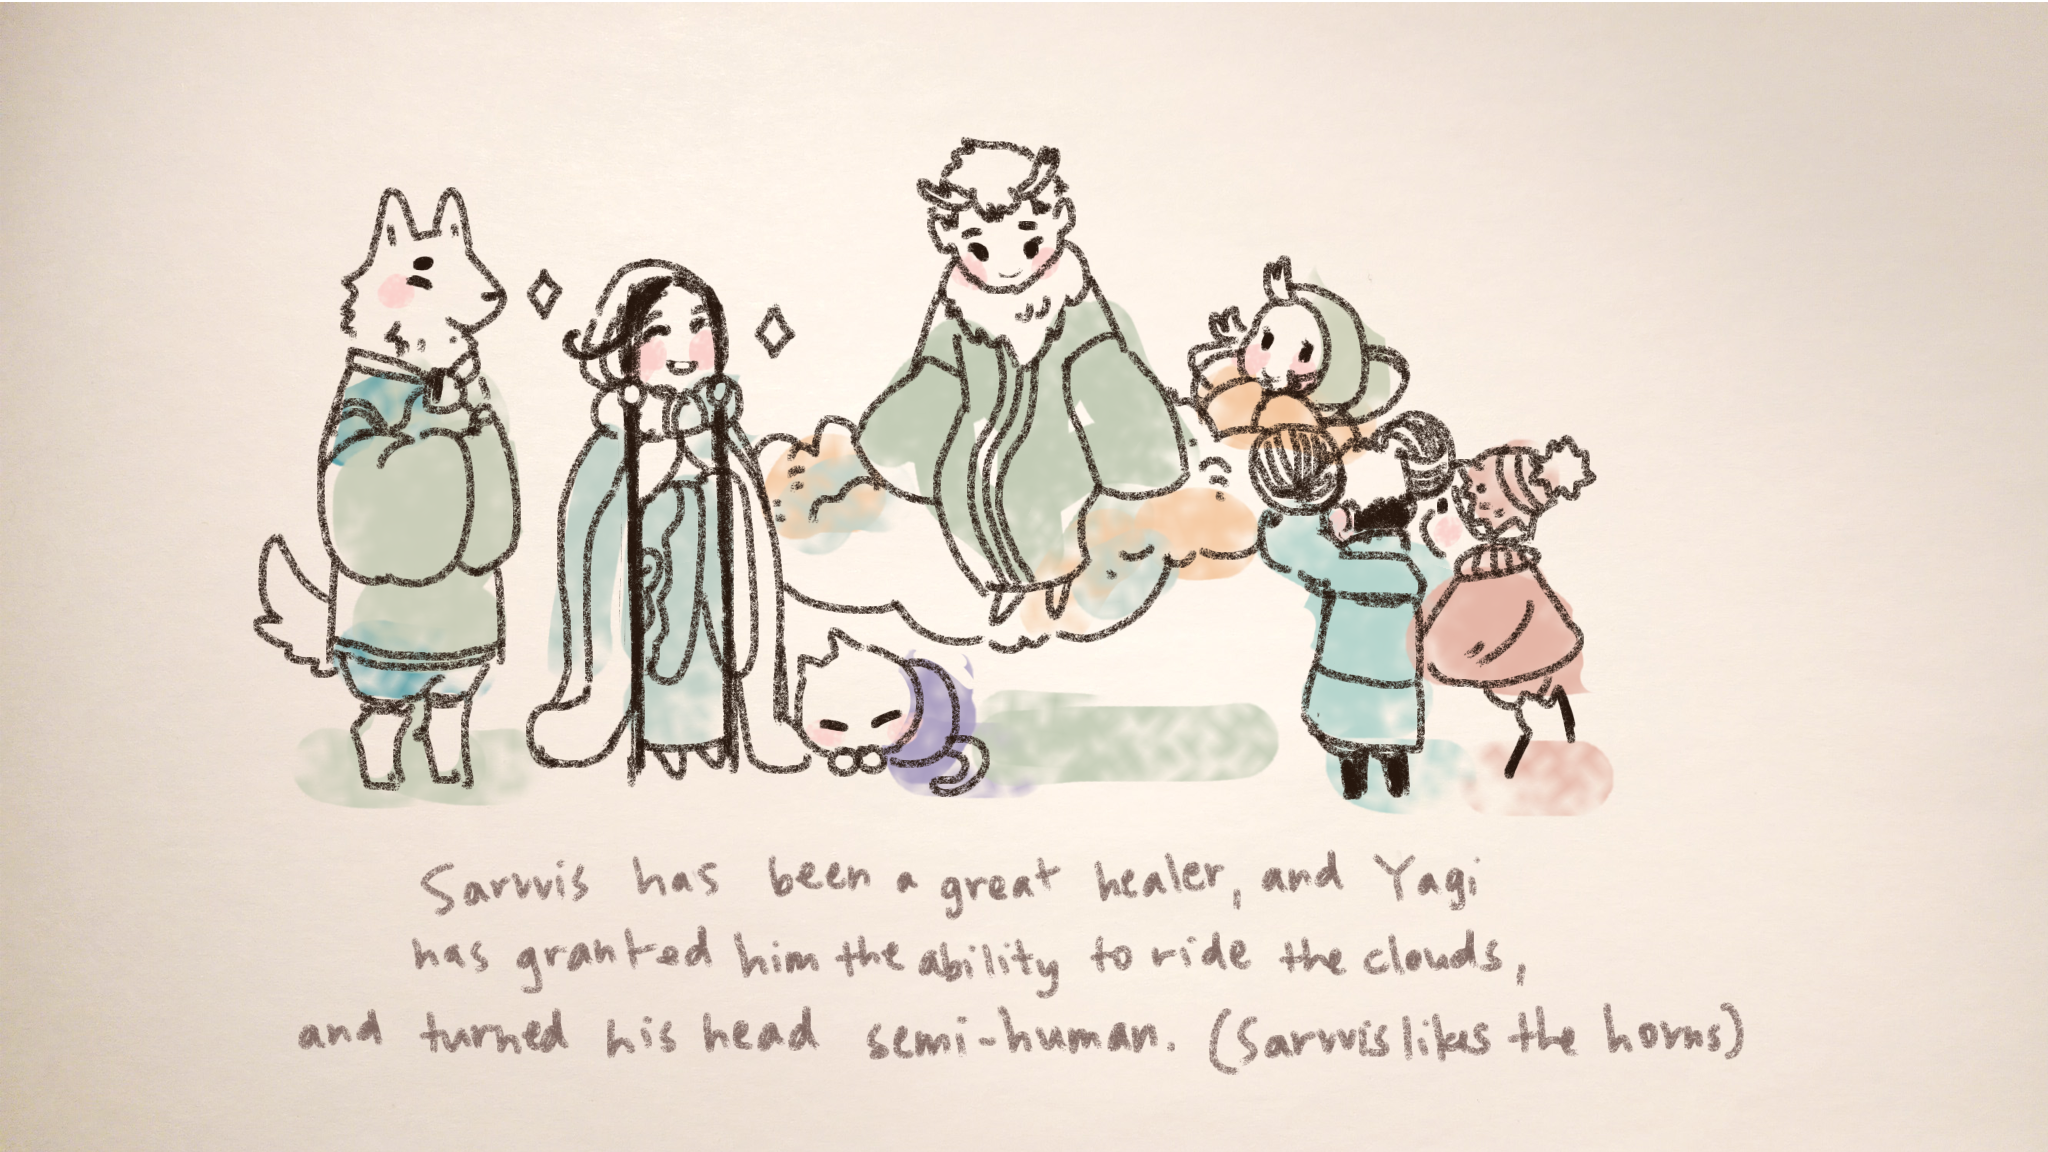 Sarvvis has been a great healer, and Yagi
has granted him the ability to ride the clouds,
and turned his head semi-human. (Sarvvis likes the horns)